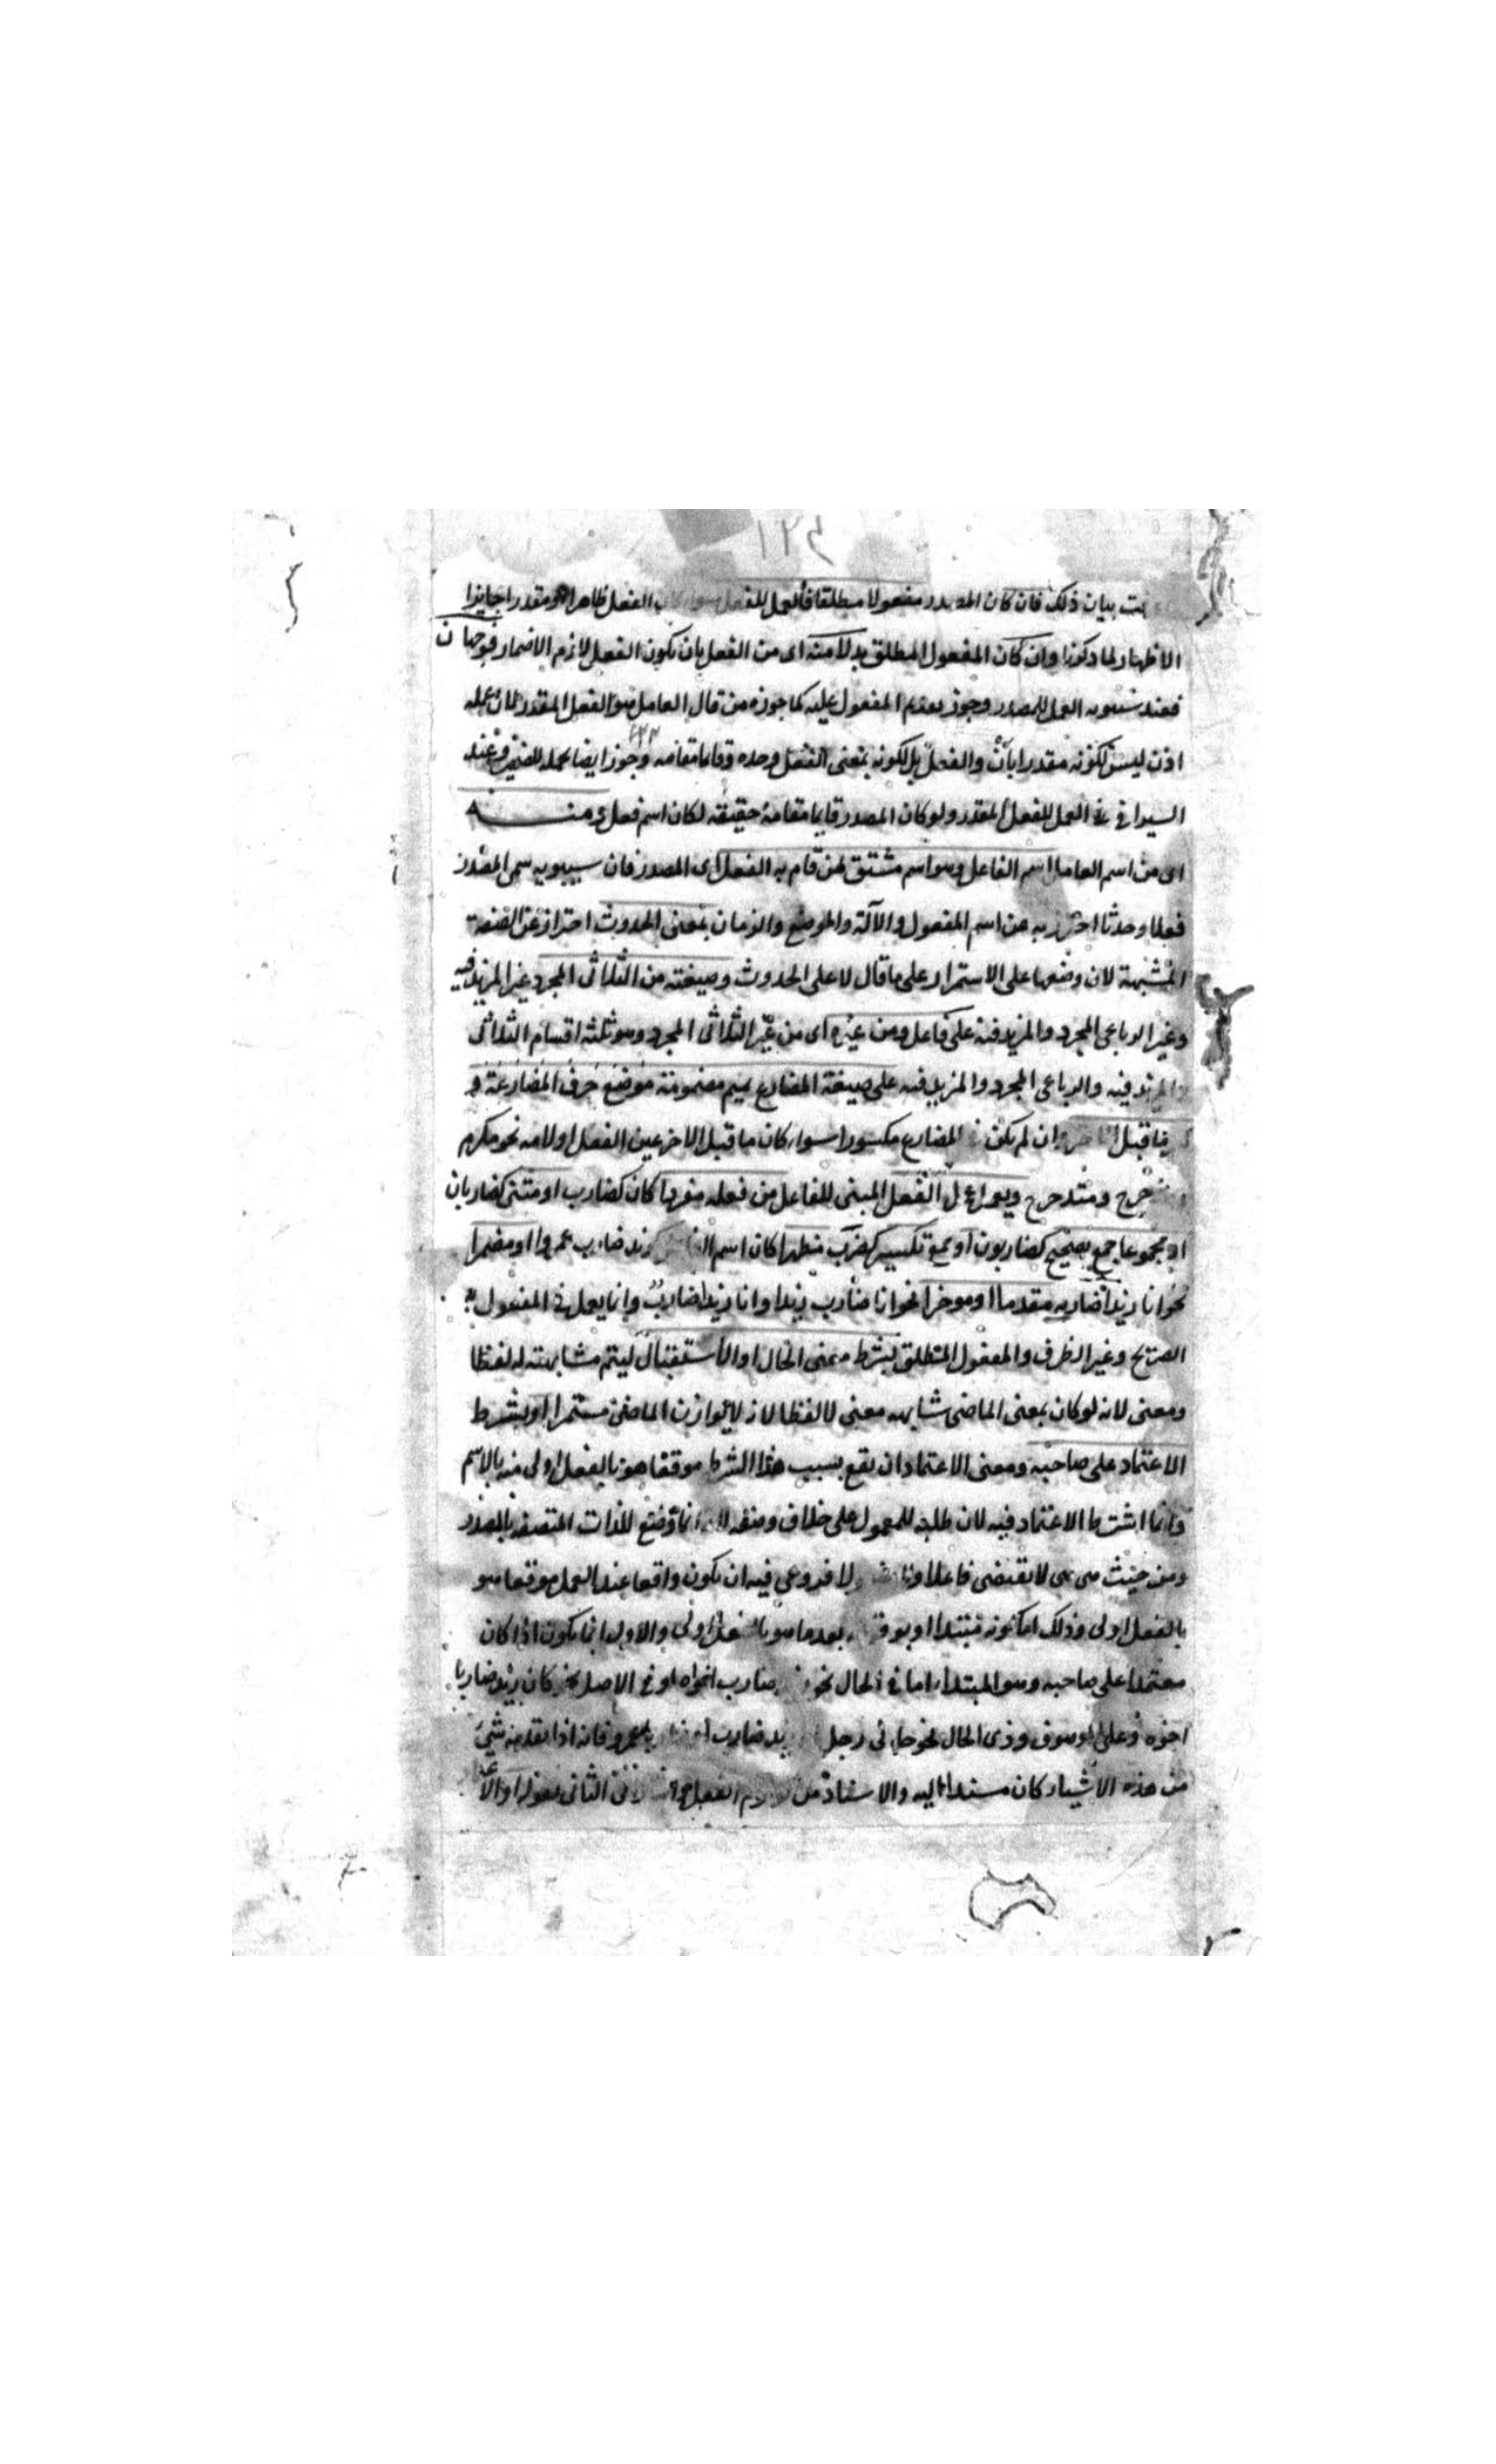 بيان ذلك فان كان المصدر مفعولا مطلقا فالعمل للفعل سواء كان الفعل ظاهرا او مقدرا جايزا
الاظهار لما ذكرنا وان كان المفعول المطلق بدلا منه اى من الفعل بان يكون الفعل لازم الاضمار فوجهان
فعند سيبويه العمل للمصدر وجوز تقديم المفعول عليه كما جوزه من قال العامل هو الفعل المقدر لان عمله
اذن ليس لكونه مقدرا بان والفعل بل لكونه بمعنى الفعل وحده وقايما مقامه وجوز ايضا عمله للضمير وعند
السيرافى فى العمل للفعل المقدر ولو كان المصدر قايما مقامه حقيقه لكان اسم فعل ومنه
اى من اسم العامل اسم الفاعل وهو اسم مشتق لمن قام به الفعل اى المصدر فان سيبويه سمى المصدر
فعلا وحدثا احترز به عن اسم المفعول والآلة والموضع والزمان بمعنى الحدوث احتراز عن الصفة
المشبهة لان وضعها على الاستمرار على ما قال لا على الحدوث وصيغته من الثلاثى المجرد غير المزيد فيه
وغير الرباعى المجرد والمزيد فيه على فاعل ومن غيره اى من غير الثلاثى المجرد وهو ثلثه اقسام الثلاثى
المزيد فيه والرباعى المجرد والمزيد فيه على صيغة المضارع بميم مضمومة موضع حرف المضارعة و
ما قبل الاخر وان لم يكن فى المضارع مكسورا سواء كان ما قبل الاخر عين الفعل او لامه نحو مكرم
ومتدحرج ويعمل عمل الفعل المبنى للفاعل من فعله مفردا كان كضارب او مثنى كضاربان
او مجموعا جمع تصحيح كضاربون او جمع تكسير كضرب مظهرا كان اسم زيد ضارب عمروا او مضمرا
نحو انا زيدا ضاربه مقدما او موخرا نحو انا ضارب زيدا وانا زيدا ضارب وانما يعمل فى المفعول به
الصريح وغير الظرف والمفعول المطلق بشرط معنى الحال او الاستقبال ليتم مشابهته له لفظا
ومعنى لانه لو كان بمعنى الماضى شابهه معنى لا لفظا لانه لا يوازن الماضى مستمرا او بشرط
الاعتماد على صاحبه ومعنى الاعتماد ان يقع بسبب هذا الشرط موقعا هو بالفعل اولى منه بالاسم
وانما اشترط الاعتماد فيه لان طلبه للمعمول على خلاف وضعه لانه انما وضع للذات المتصفه بالمصدر
ومن حيث هى هى لا تقتضى فاعلا ولا فروعى فيه ان يكون واقعا عند العمل موقعا هو
بالفعل اولى وذلك بعد ما هو بالفعل اولى والاول انما يكون اذا كان
معتمدا على صاحبه وهو المبتداء اما فى الحال نحو ضارب اخواه او فى الاصل نحو كان زيد ضاربا
اخوه وعلى الموصوف وذى الحال نحو جانى رجل ضارب عمرو فانه اذا تقدمه شئ
من هذه الاشياء كان مسندا اليه والاسناد من الفعل الثانى بقوله او